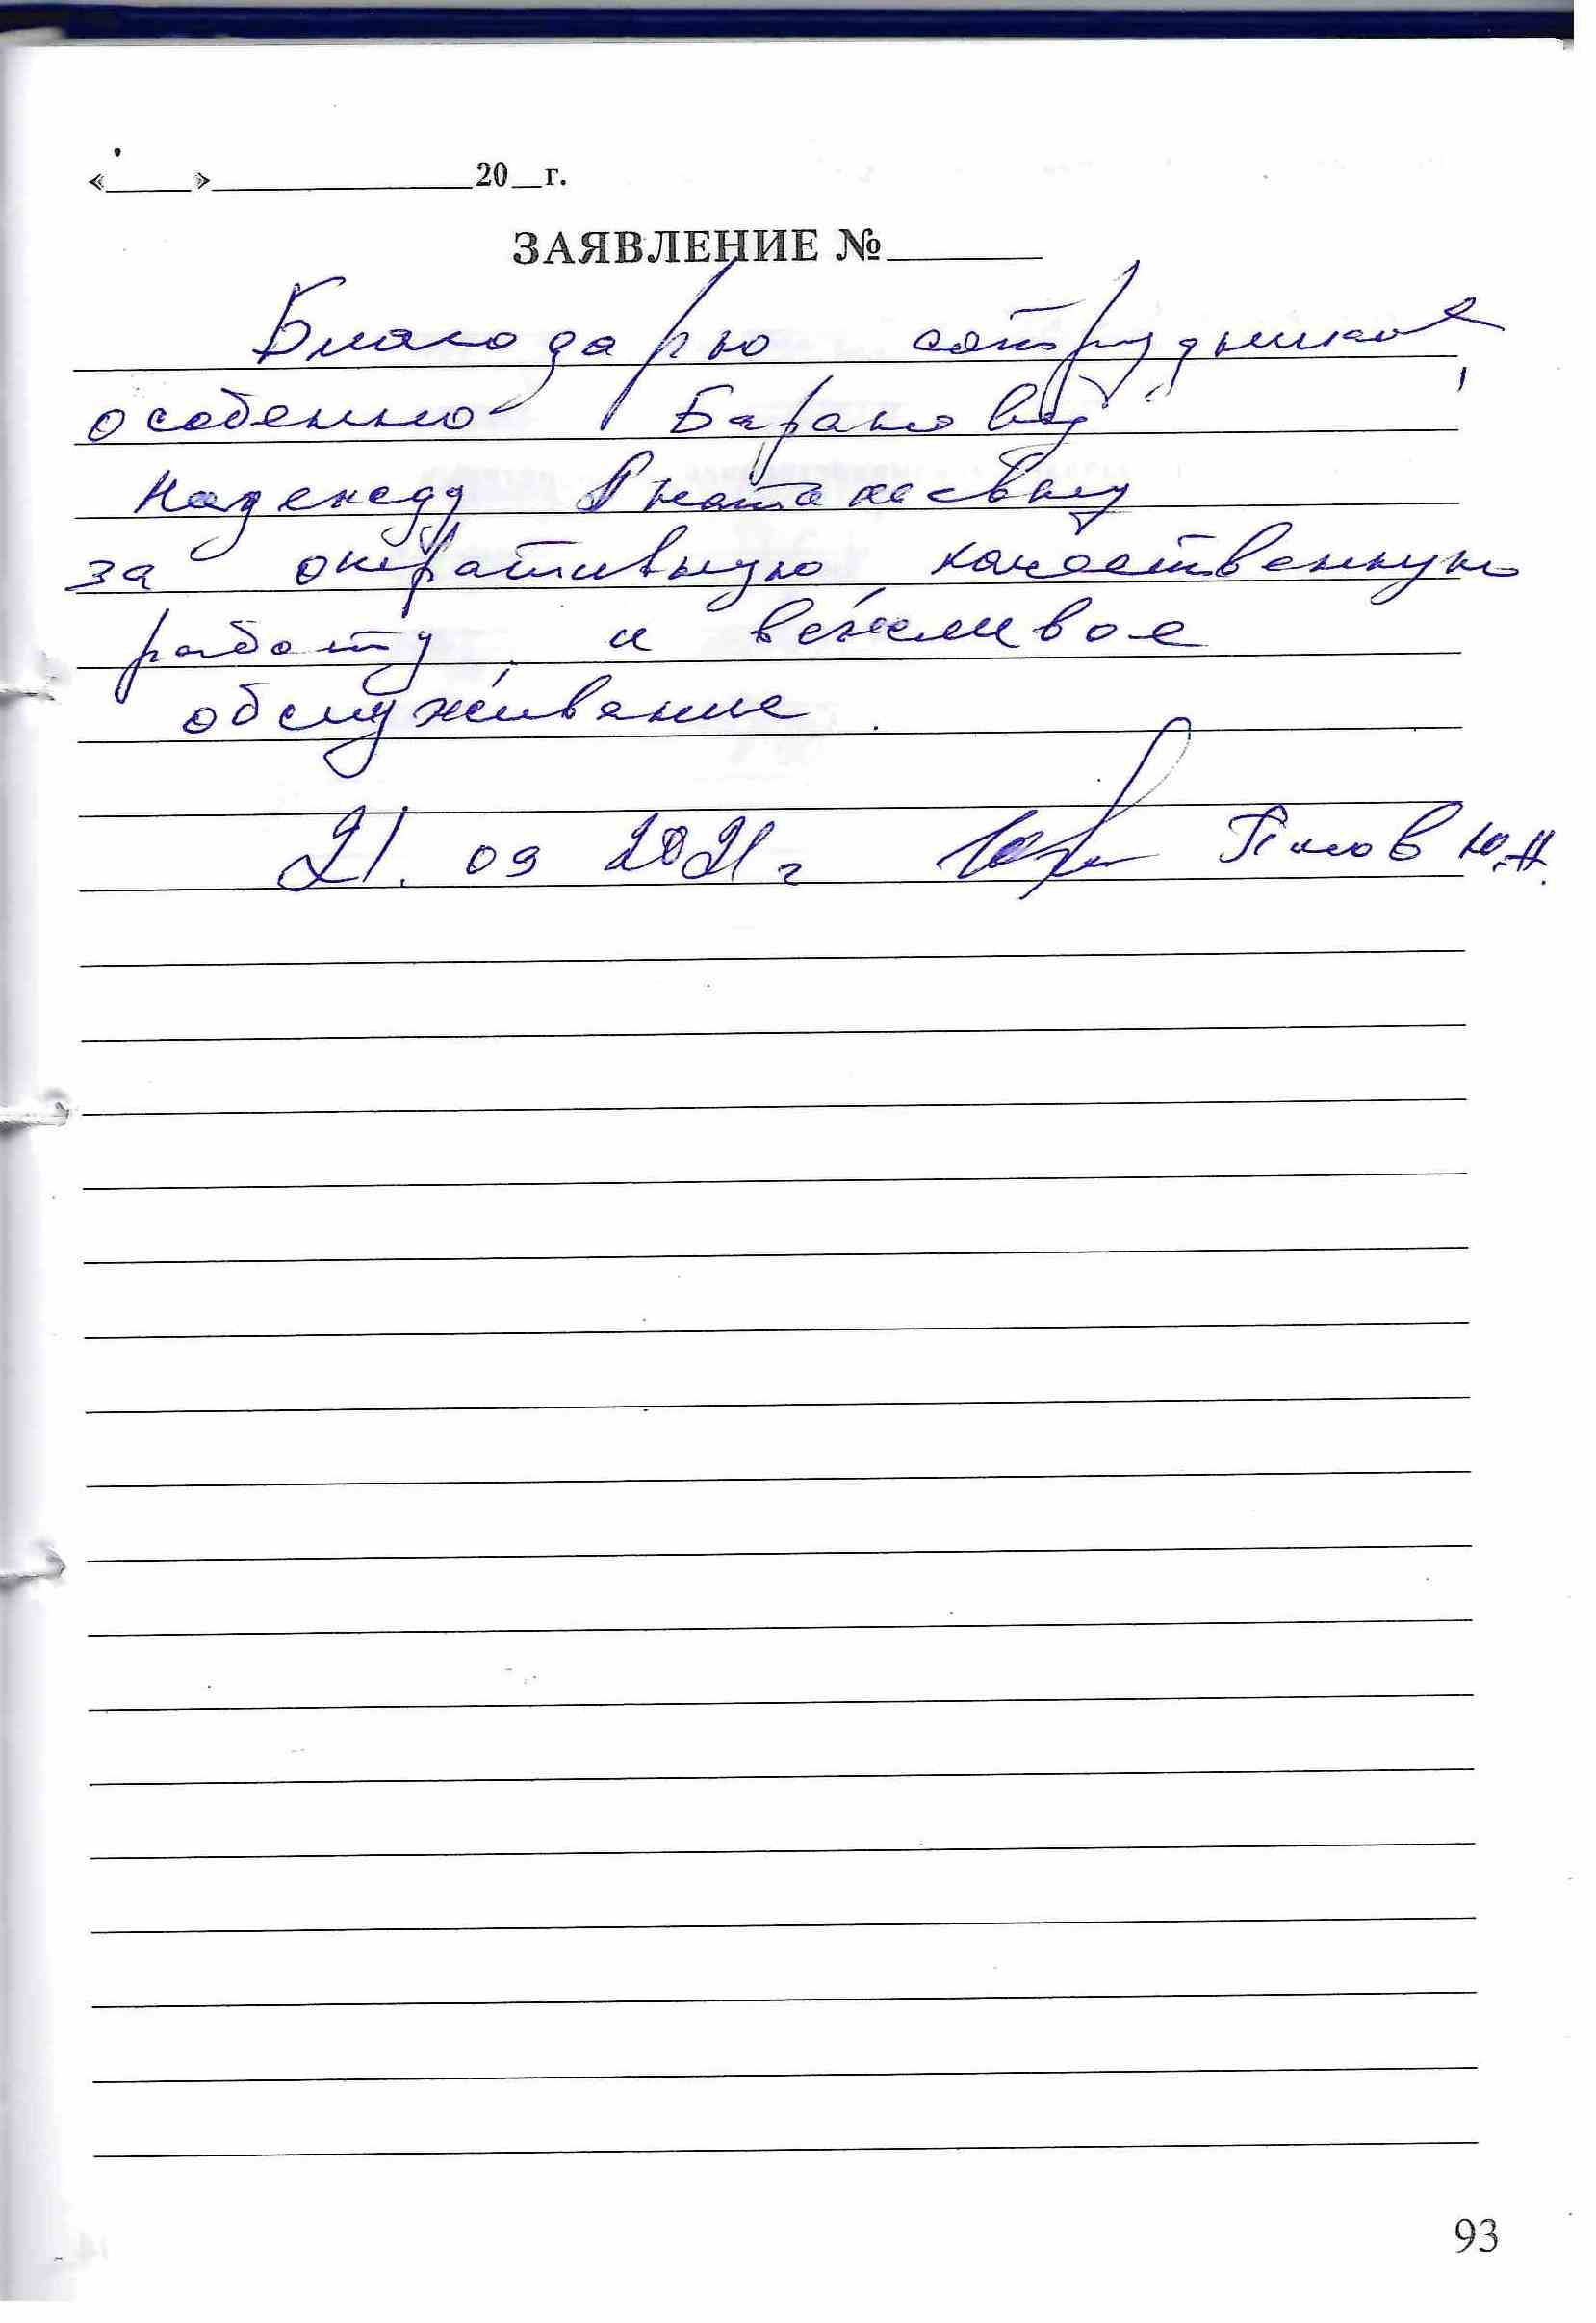 «_____»_______________20__г.
ЗАЯВЛЕНИЕ №________
Благодарю сотрудников,
особенно Баранову
Надежду
за оперативную, качественную
работу и вежливое
обслуживание.
21.09 2021 г Ю.Н.
93